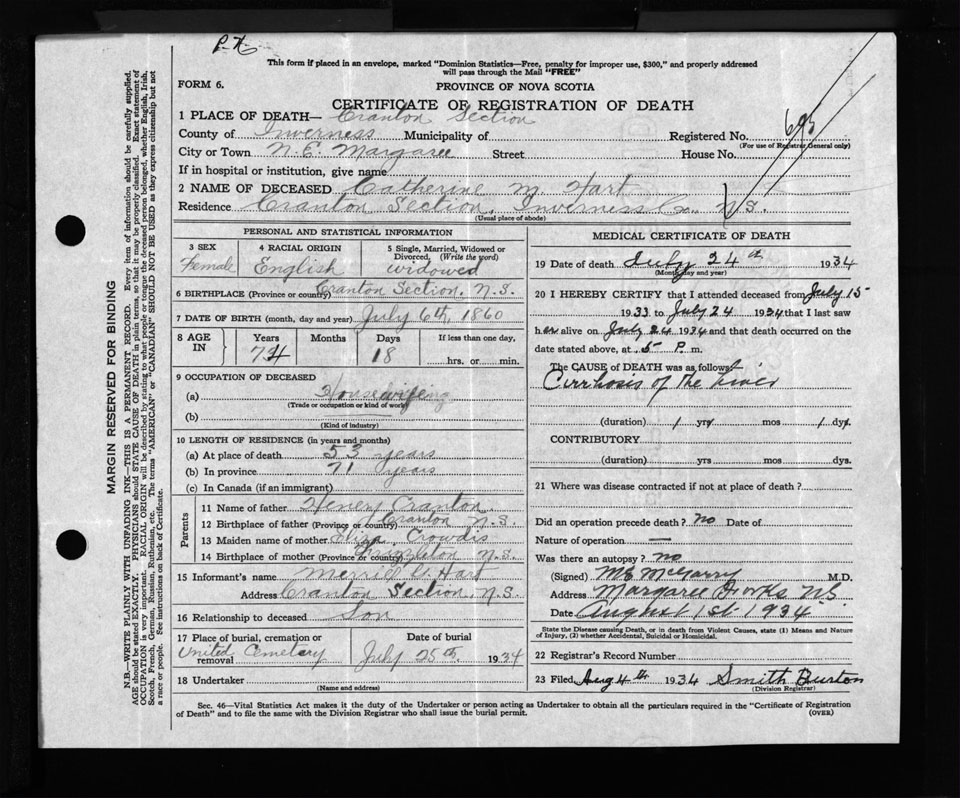 P.X
This form if placed in an envelope, marked "Dominion Statistics—Free, penalty for improper use, $300," and properly addressed
will pass through the Mail "FREE"
FORM 6.
PROVINCE OF NOVA SCOTIA
CERTIFICATE OF REGISTRATION OF DEATH
1 PLACE OF DEATH— Cranton Section
County of Inverness Municipality of Registered No. 695
(For use of Registrar General only)
City or Town N. E. Margaree Street House No.
If in hospital or institution, give name
2 NAME OF DECEASED Catherine M. Hart
Residence Cranton Section, Inverness Co. N.S.
(Usual place of abode)
PERSONAL AND STATISTICAL INFORMATION
3 SEX Female
4 RACIAL ORIGIN English
5 Single, Married, Widowed or Divorced, (Write the word) widowed
6 BIRTHPLACE (Province or country) Cranton Section, N.S.
7 DATE OF BIRTH (month, day and year) July 6th, 1860
8 AGE IN Years 74 Months Days 18 If less than one day, hrs. or min.
9 OCCUPATION OF DECEASED
(a) Housewifeing
(Trade or occupation or kind of work)
(b)
(Kind of industry)
10 LENGTH OF RESIDENCE (in years and months)
(a) At place of death 53 years
(b) In province 71 years
(c) In Canada (if an immigrant)
Parents
11 Name of father Henery Cranton
12 Birthplace of father (Province or country) Cranton N.S.
13 Maiden name of mother Eliza Crowdis
14 Birthplace of mother (Province or country) N.S.
15 Informant's name Merril V. Hart
Address Cranton Section, N.S.
16 Relationship to deceased Son
17 Place of burial, cremation or removal United Cemetery
Date of burial July 25th, 1934
18 Undertaker
(Name and address)
MEDICAL CERTIFICATE OF DEATH
19 Date of death July 24th 1934
(Month, day and year)
20 I HEREBY CERTIFY that I attended deceased from July 15
1933 to July 24 1934 that I last saw
her alive on July 24 1934 and that death occurred on
date stated above, at 5 P. m.
The CAUSE OF DEATH was as follows:
Cirrhosis of the Liver
(duration) 1 yrs 1 mos 1 dys.
CONTRIBUTORY
(duration) yrs mos dys.
21 Where was disease contracted if not at place of death?
Did an operation precede death? no Date of
Nature of operation —
Was there an autopsy? no
(Signed) M E McGarry M.D.
Address Margaree Forks NS
Date August 1st 1934
State the Disease causing Death, or in death from Violent Causes, state (1) Means and Nature
of Injury, (2) whether Accidental, Suicidal or Homicidal.
22 Registrar's Record Number
23 Filed Aug 4th 1934 Smith Burton
(Division Registrar)
Sec. 46—Vital Statistics Act makes it the duty of the Undertaker or person acting as Undertaker to obtain all the particulars required in the "Certificate of Registration
of Death" and to file the same with the Division Registrar who shall issue the burial permit. (OVER)
MARGIN RESERVED FOR BINDING
N.B.—WRITE PLAINLY WITH UNFADING INK—THIS IS A PERMANENT RECORD. Every item of information should be carefully supplied.
AGE should be stated EXACTLY. PHYSICIANS should STATE CAUSE OF DEATH in plain terms, so that it may be properly classified. Exact statement of
OCCUPATION is very important. RACIAL ORIGIN will be described by stating to what people or tongue the deceased person belonged, whether English, Irish,
Scotch, French, German, Russian, Ruthenian, etc. The terms "AMERICAN" or "CANADIAN" SHOULD NOT BE USED as they express citizenship but not
a race or people. See instructions on back of Certificate.